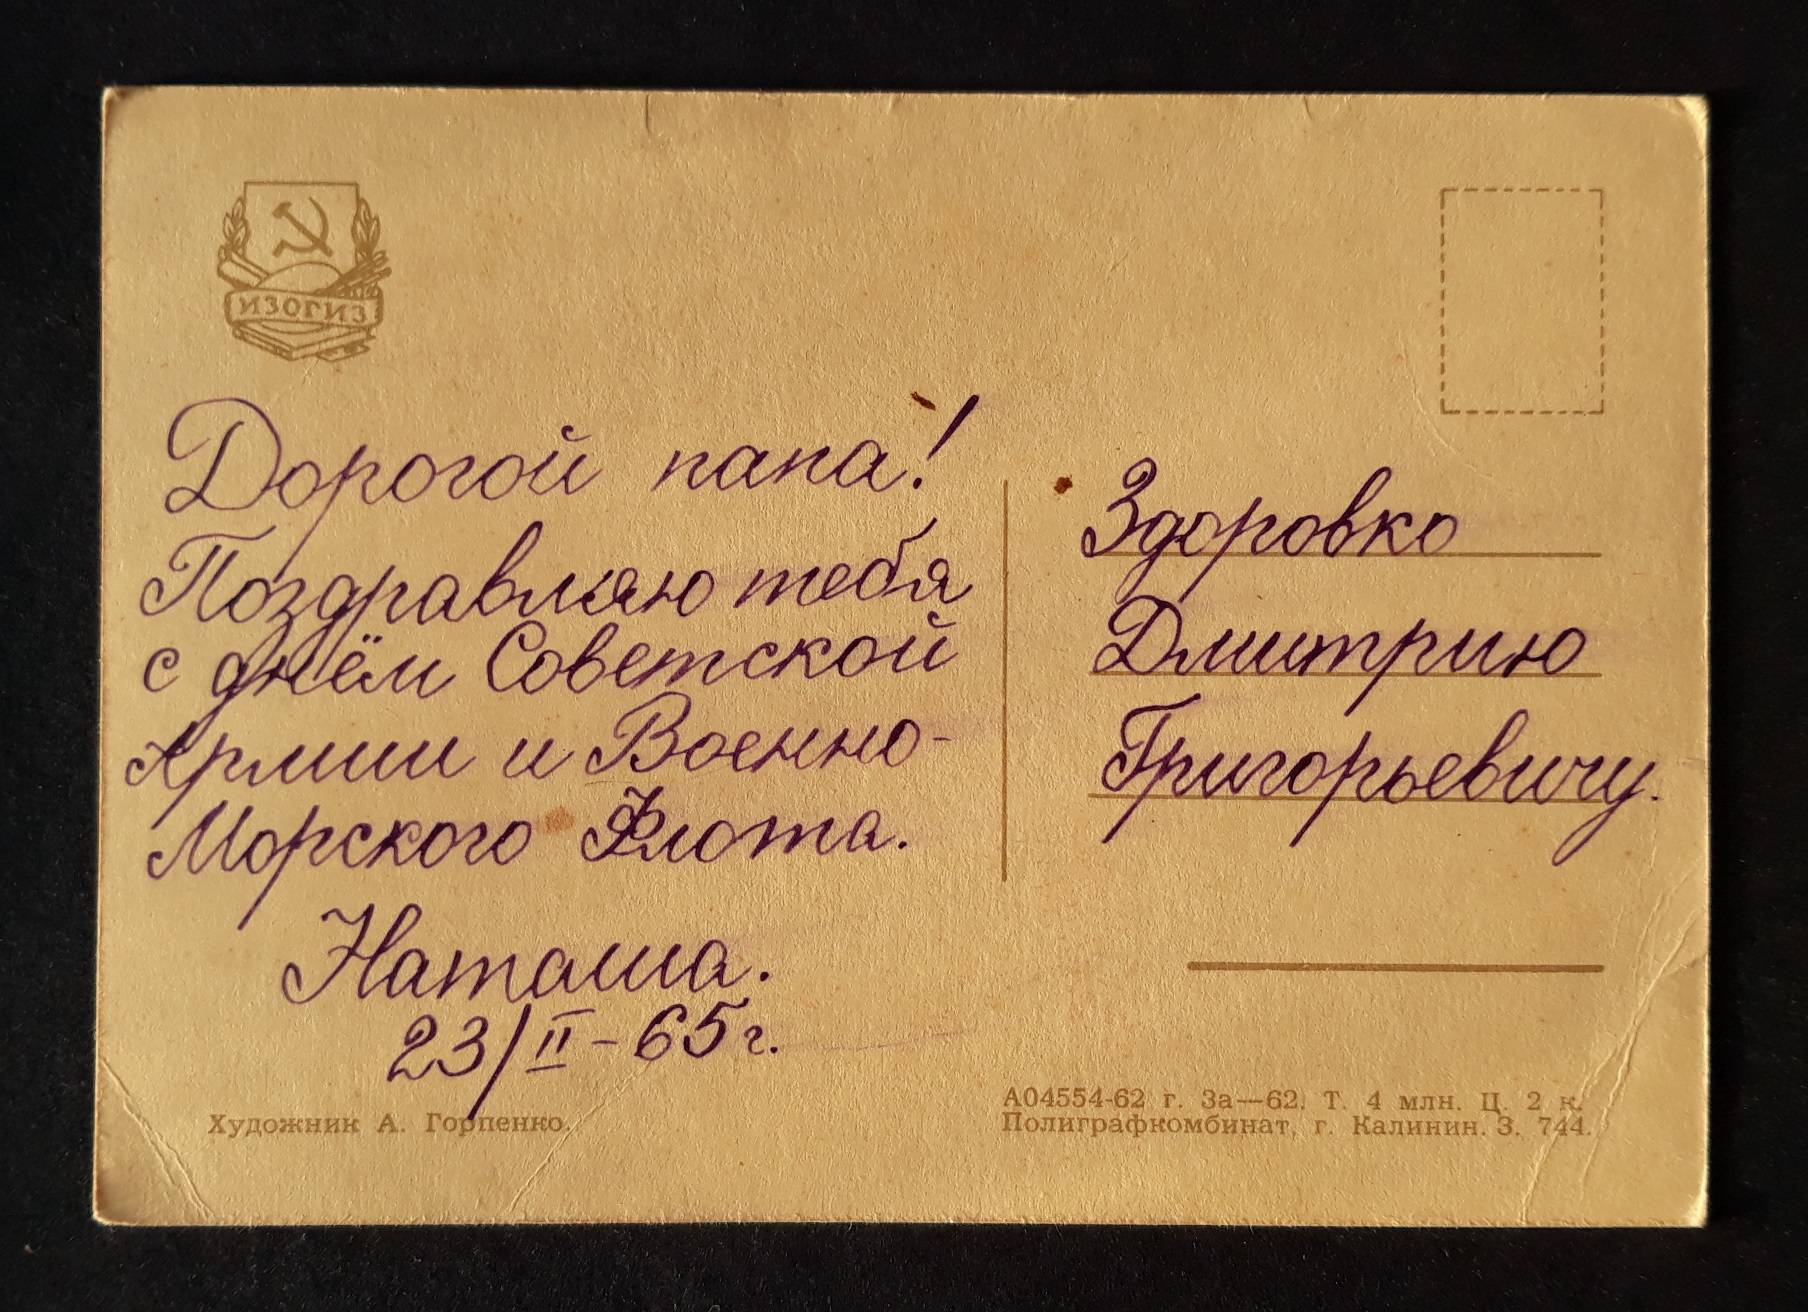 ИЗОГИЗ
Дорогой папа!
Поздравляю тебя
с днём Советской
Армии и Военно-
Морского Флота.
Наташа.
23/II-65г.
Здоровко
Дмитрию
Григорьевичу.
Художник А. Горпенко.
А04554-62 г. За—62. Т. 4 млн. Ц. 2 к.
Полиграфкомбинат, г. Калинин. З. 744.